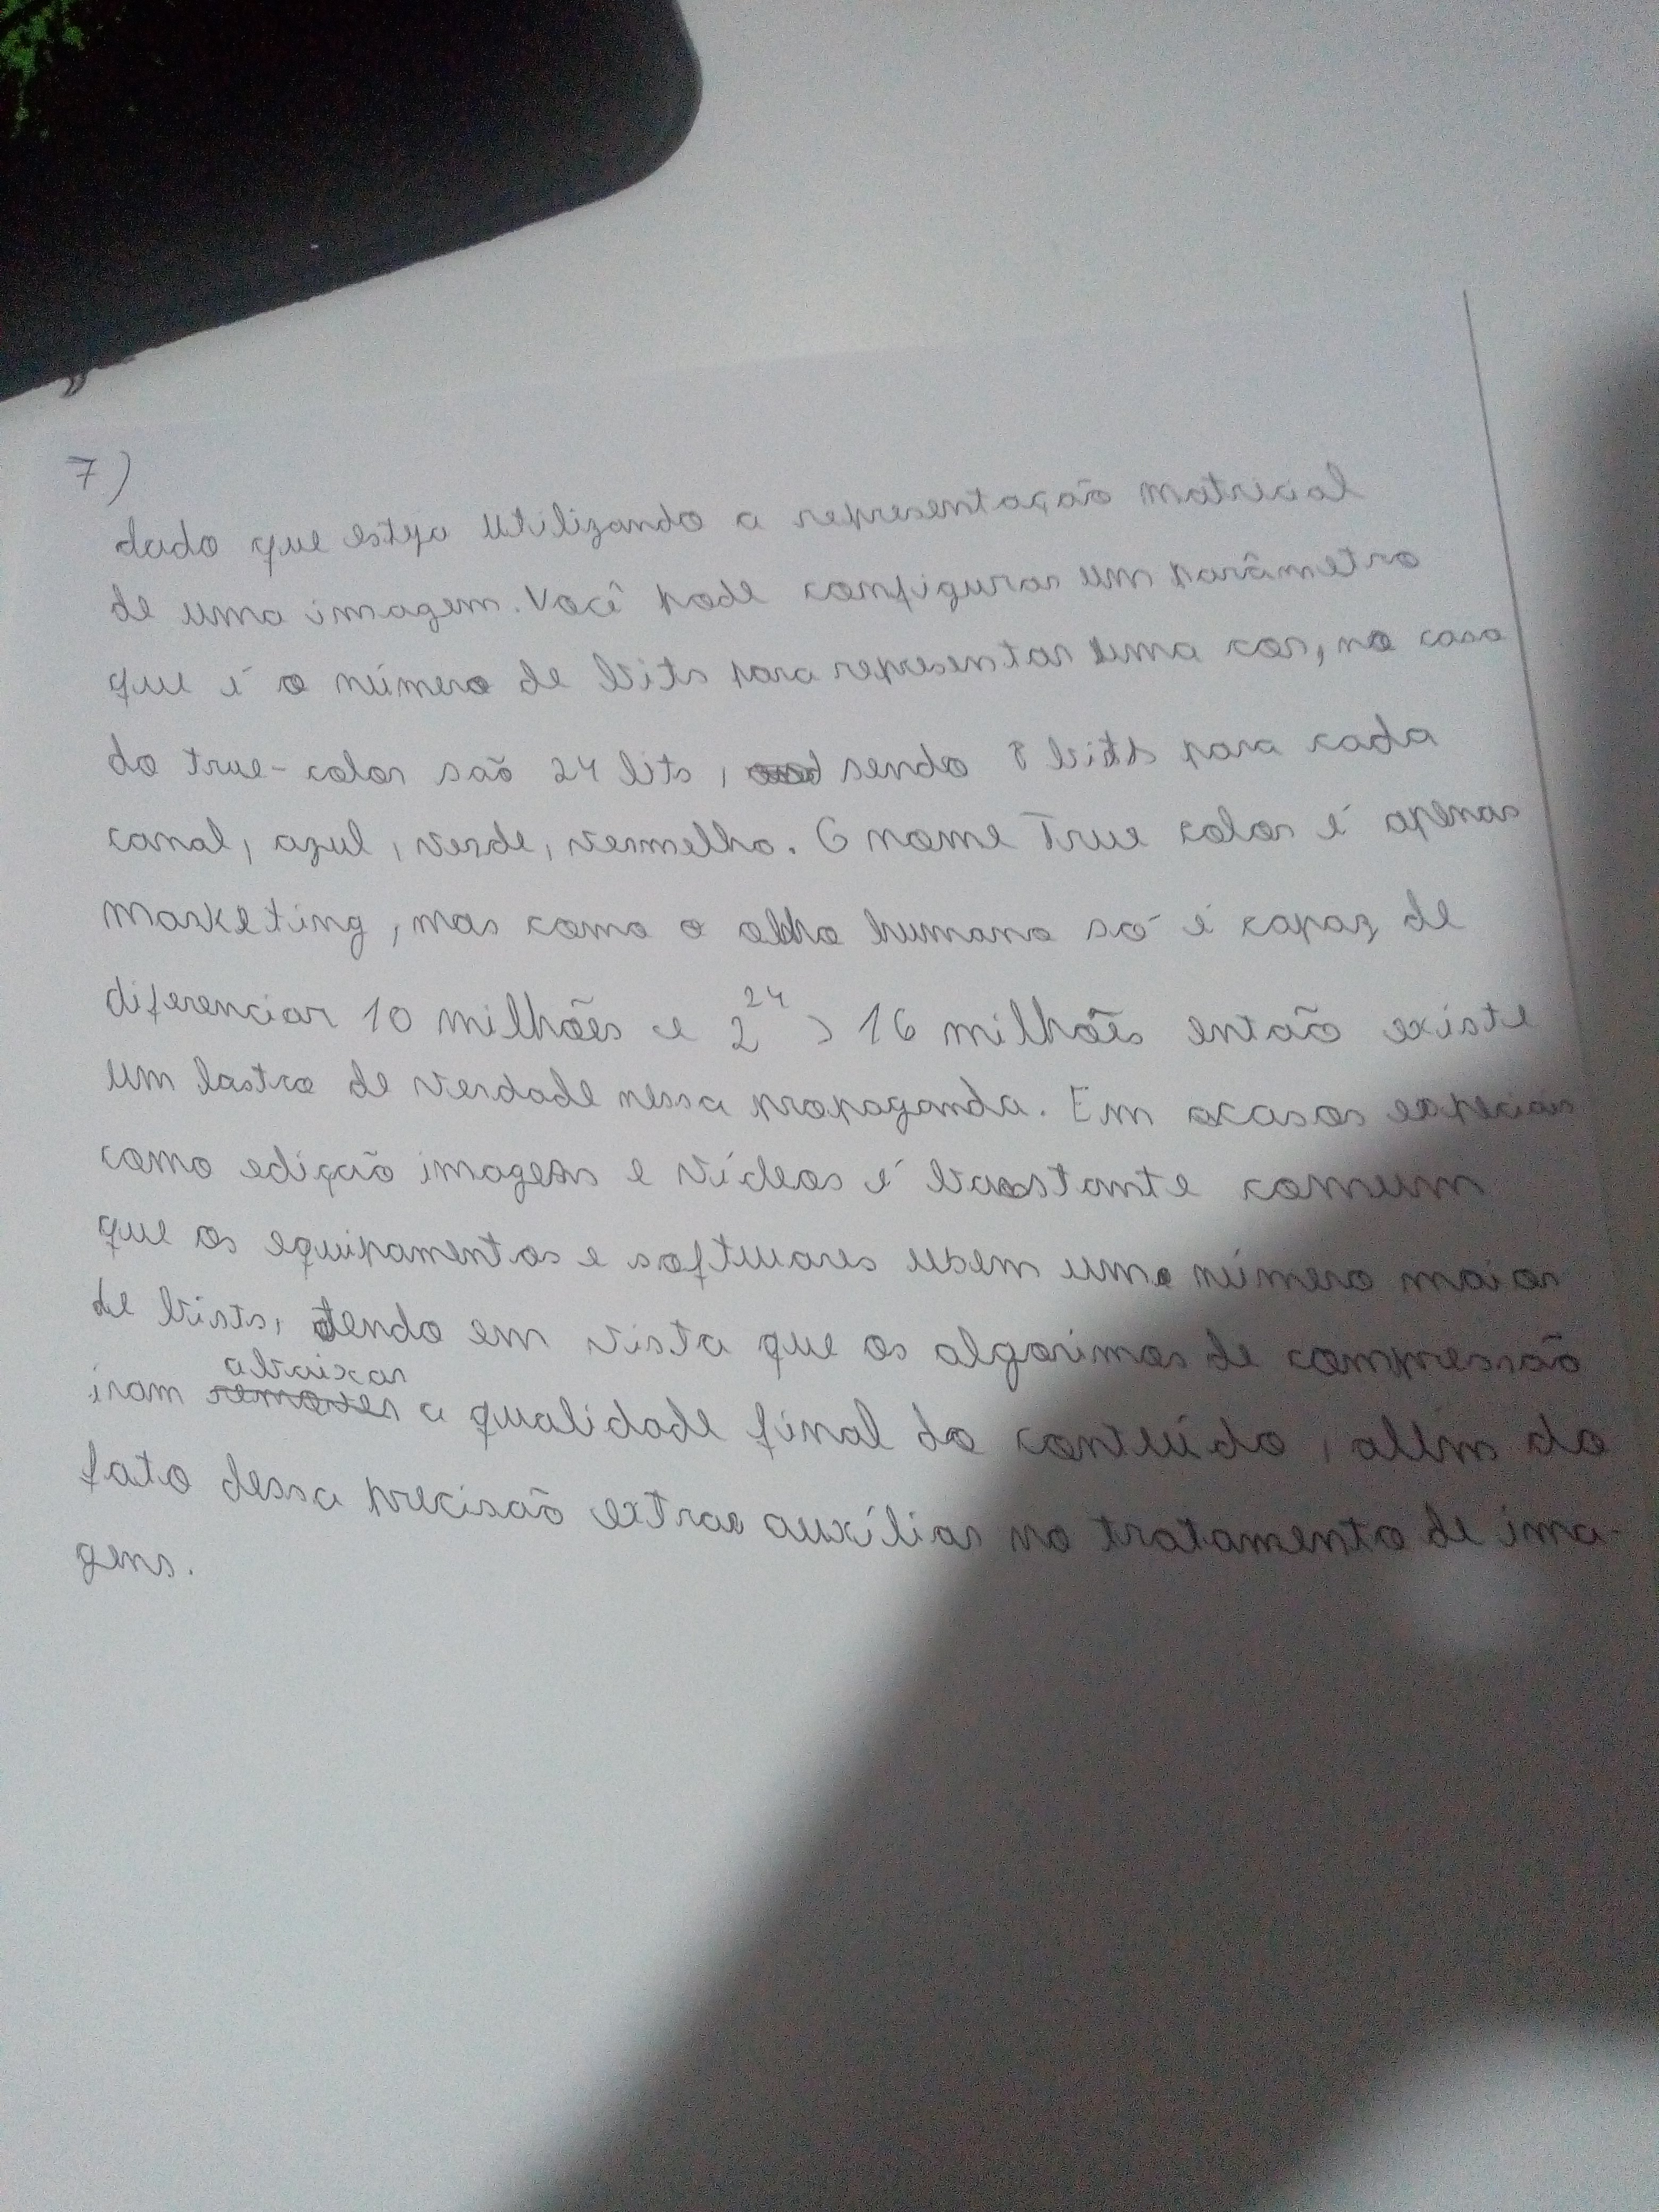 7)
dado que esteja utilizando a representação matricial
de uma imagem. Você pode configurar um parâmetro
que é o número de bits para representar uma cor, no caso
do true-color são 24 bits, sendo 8 bits para cada
canal, azul, verde, vermelho. O nome True color é apenas
marketing, mas como o olho humano só é capaz de
diferenciar 10 milhões e 2²⁴ > 16 milhões então existe
um lastro de verdade nessa propaganda. Em casos especiais
como edição imagens e vídeos é bastante comum
que os equipamentos e softwares usem um número maior
de bists, tendo em vista que os algorimos de compressão
iram abaixar a qualidade final do conteúdo, além do
fato dessa precisão extra auxíliar no tratamento de ima-
gens.